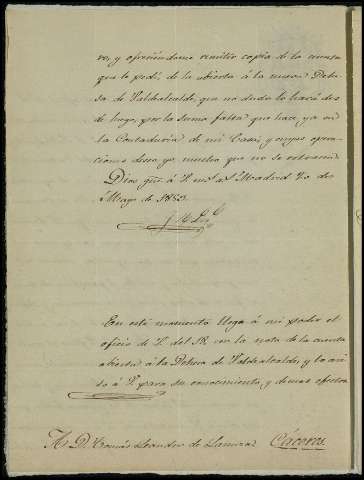 vo, y ofreciéndome remitir copia de la cuenta
que le pedí, de la abierta á la nueva Dehe-
sa de Valdealcalde, que no dudo lo hará des-
de luego, por la suma falta que hace ya en
la Contaduría de mi Casa, y cuyas opera-
ciones deseo yo mucho que no se retrasen
Dios gue. á V. ms. as. Madrid 20 de
Mayo de 1853.
En este momento llega á mi poder el
oficio de V. del 18 con la nota de la cuenta
abierta á la Dehesa de Valdealcalde, y lo avi-
so á V. para su conocimiento, y demas efectos
Sr. D. Tomás Leandro de Cáceres